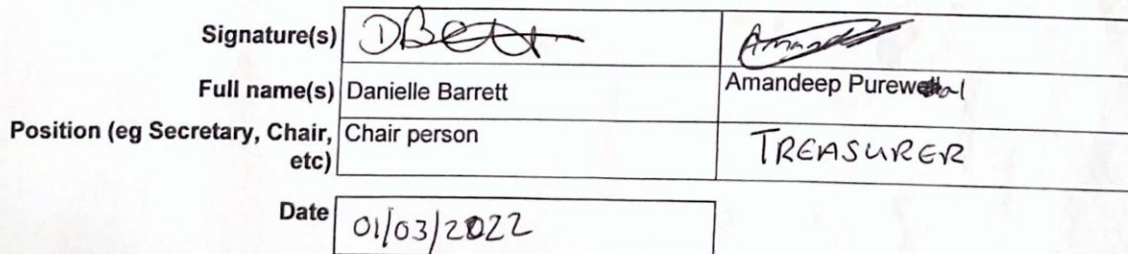 Signature(s) DBett Amand
Full name(s) Danielle Barrett Amandeep Purewal
Position (eg Secretary, Chair, Chair person TREASURER
etc)
Date 01/03/2022